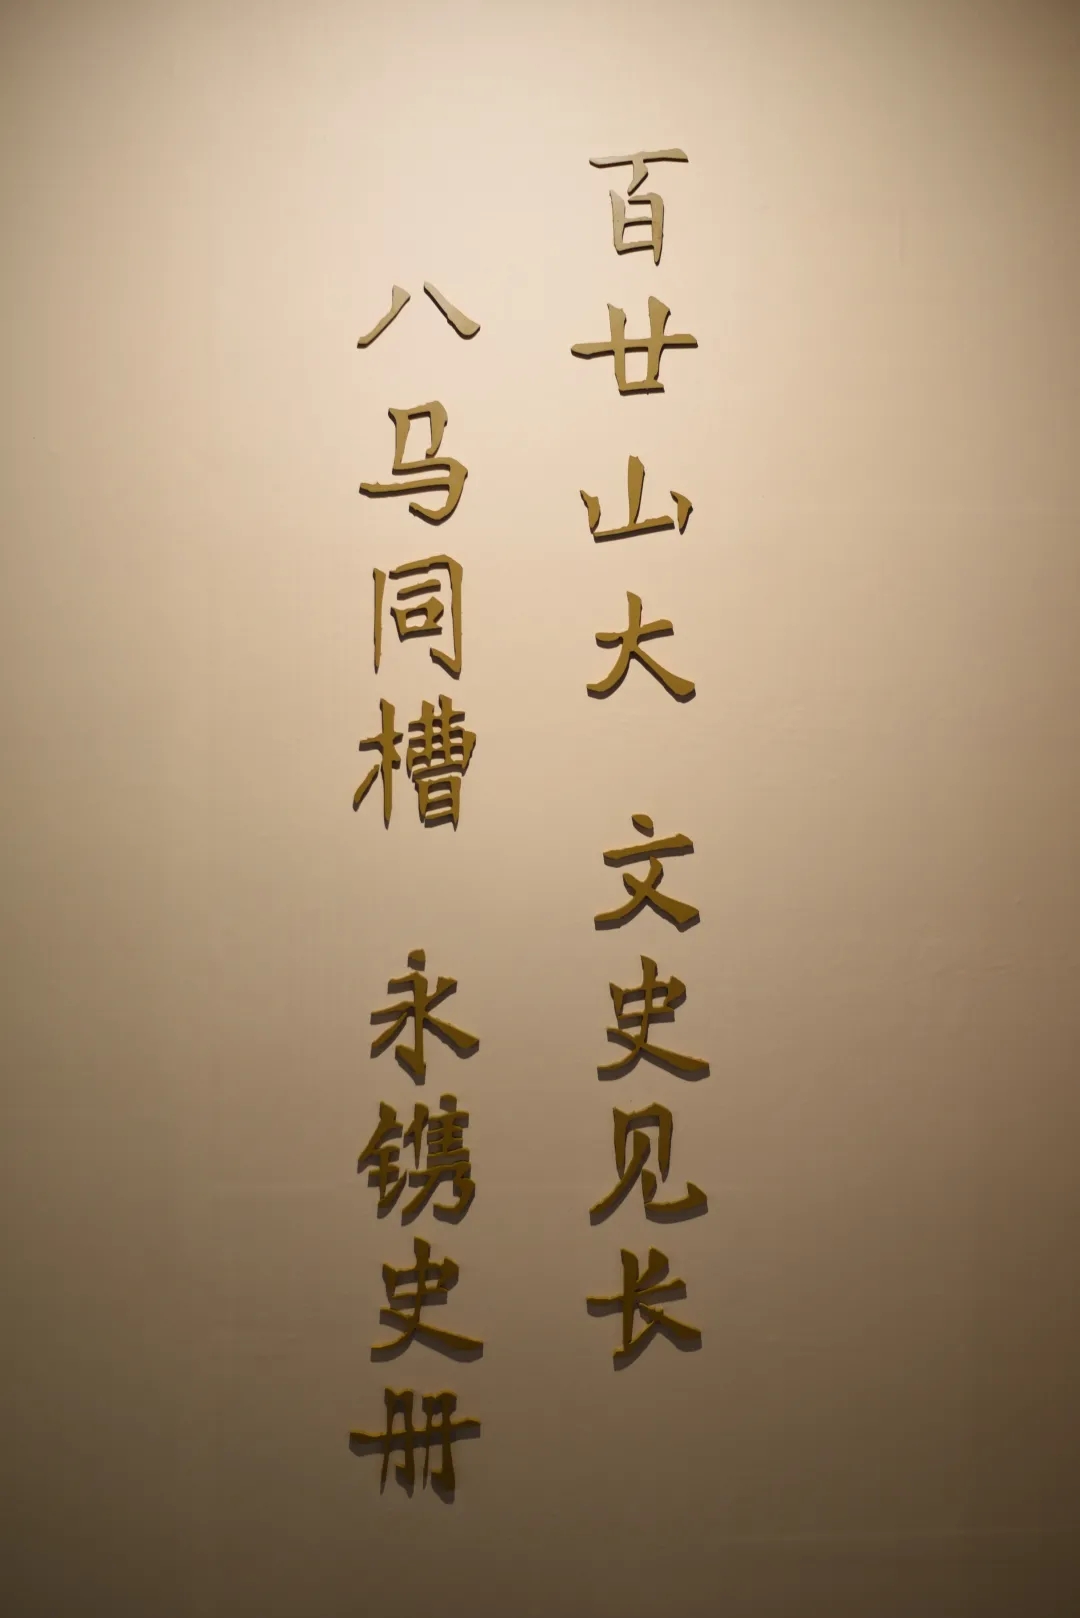 百廿山大 文史见长
八马同槽 永镌史册